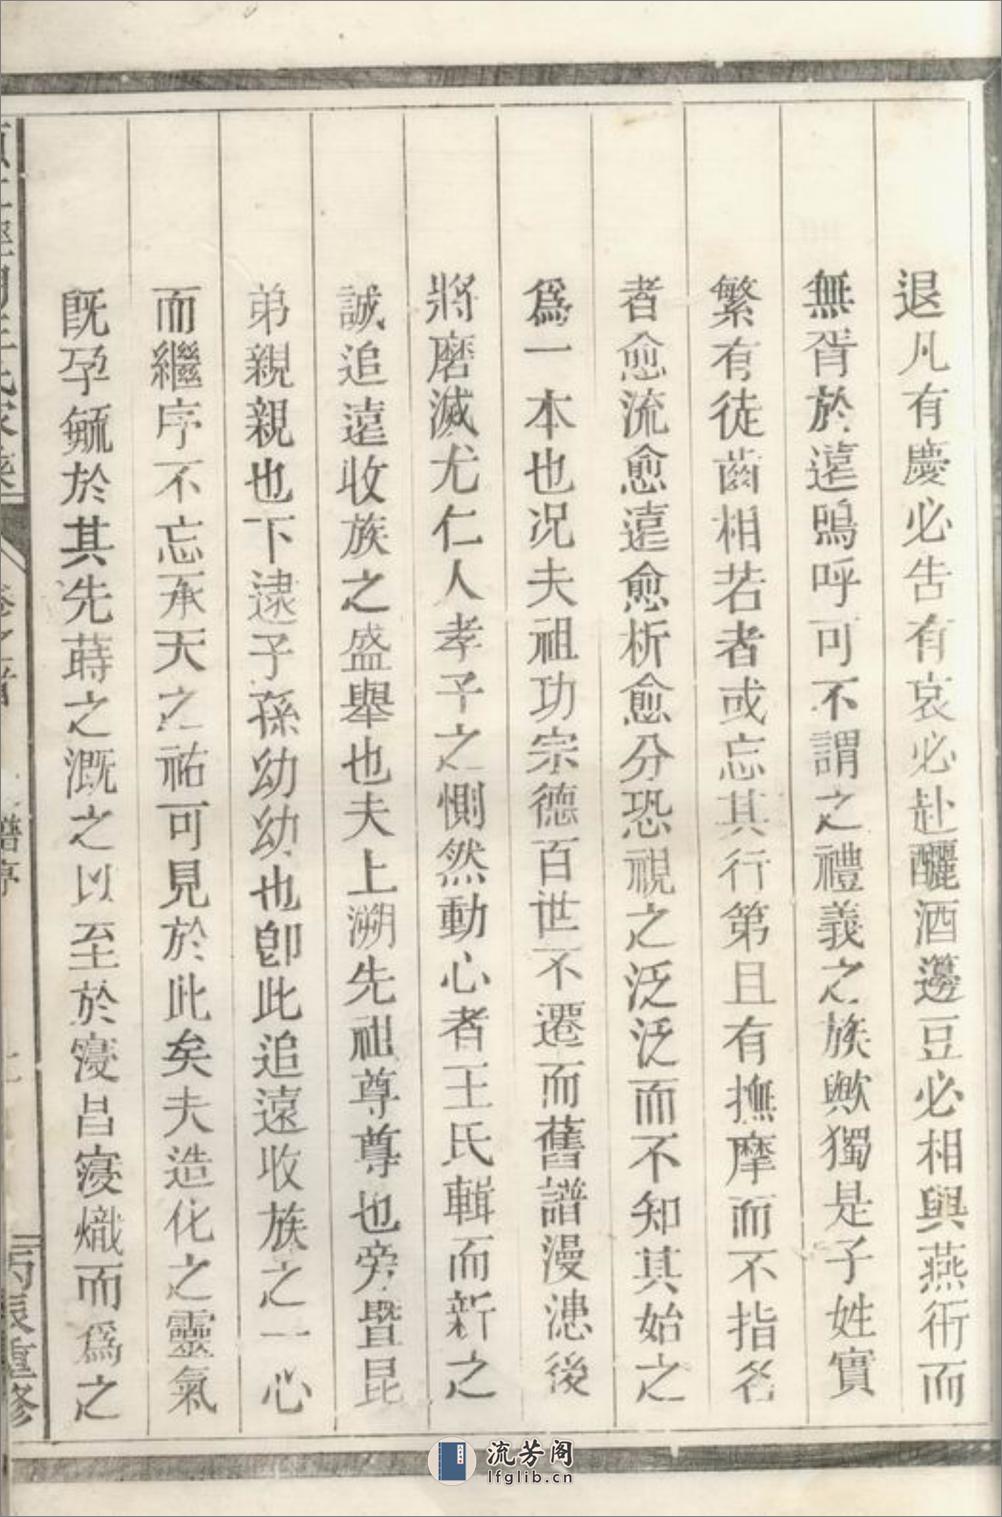 退凡有慶必告有哀必赴釃酒籩豆必相與燕衎而
無胥於遠嗚呼可不謂之禮義之族歟獨是子姓實
繁有徒齒相若者或忘其行第且有撫摩而不指名
者愈流愈遠愈析愈分恐視之泛泛而不知其始之
為一本也况夫祖功宗德百世不遷而舊譜漫漶後
將磨滅尤仁人孝子之惻然動心者王氏輯而新之
誠追遠收族之盛舉也夫上溯先祖尊尊也旁暨昆
弟親親也下逮子孫幼幼也卽此追遠收族之一心
而繼序不忘承天之祐可見於此矣夫造化之靈氣
旣孕毓於其先蒔之溉之以至於寖昌寖熾而為之
王氏家乘
卷之首
譜序
丙辰重修
流芳阁
lfglib.cn